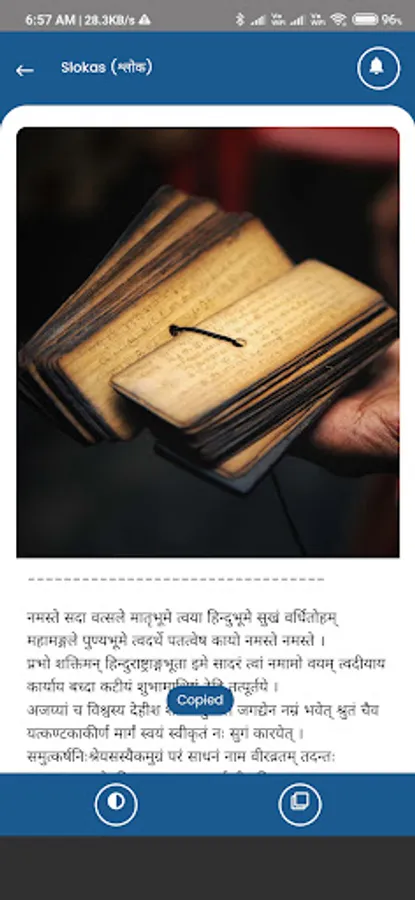 6:57 AM | 28.3KB/s
Vo WiFi
Vo WiFi
96%
Slokas (श्लोक)
नमस्ते सदा वत्सले मातृभूमे त्वया हिन्दुभूमे सुखं वर्धितोहम्
महामङ्गले पुण्यभूमे त्वदर्थे पतत्वेष कायो नमस्ते नमस्ते ।
प्रभो शक्तिमन् हिन्दुराष्ट्राङ्गभूता इमे सादरं त्वां नमामो वयम् त्वदीयाय
कार्याय बध्दा कटीयं तत्पूर्तये ।
Copied
अजय्यां च विश्वस्य देहीश जगद्येन नम्रं भवेत् श्रुतं चैव
यत्कण्टकाकीर्ण मार्गं स्वयं स्वीकृतं नः सुगं कारयेत् ।
समुत्कर्षनिःश्रेयसस्यैकमुग्रं परं साधनं नाम वीरव्रतम् तदन्तः